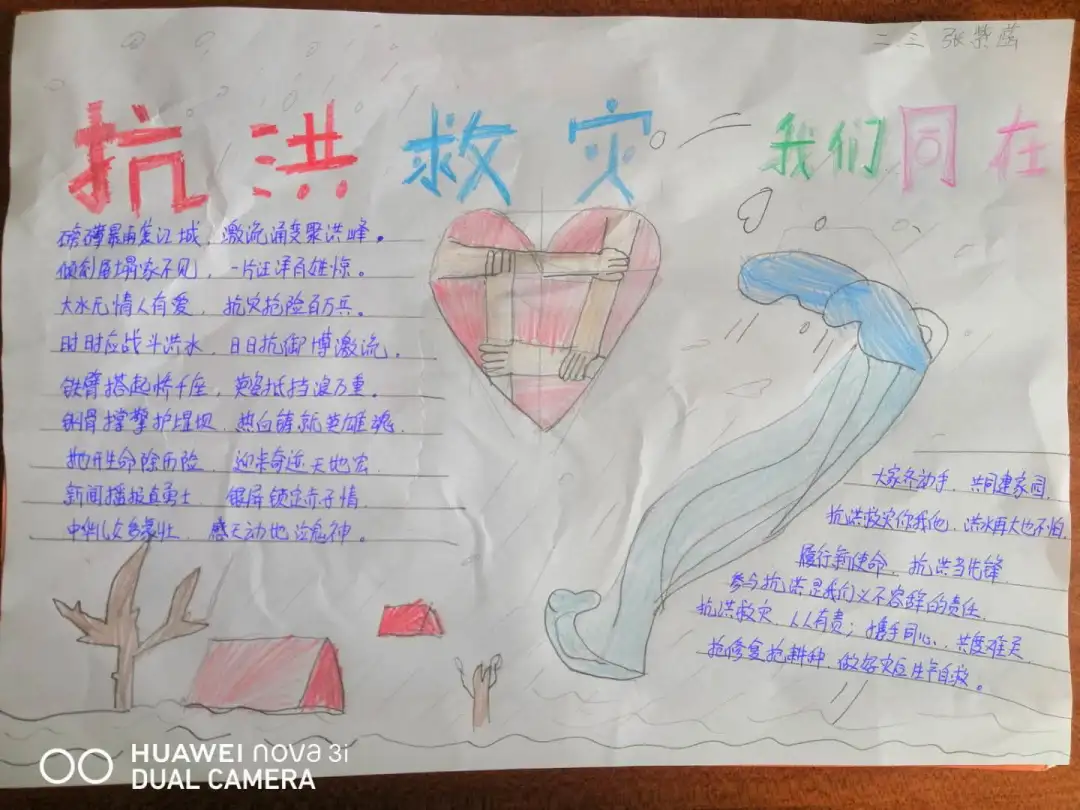 二.三 张紫菡
抗洪救灾 我们同在
磅礴暴雨袭江城，激流涌变聚洪峰。
倾刻屋塌家不见，一片汪洋百雄惊。
大水无情人有爱，抗灾抢险百万兵。
时时应战斗洪水，日日抗御搏激流。
铁臂搭起桥千座，英姿抵挡浪万重。
钢骨撑擎护堤坝，热血铸就英雄魂。
抛开生命除历险，迎来奇迹天地宏。
新闻播报真勇士，银屏锁定赤子情
中华儿女多豪壮，感天动地泣鬼神。
大家齐动手，共同建家园，
抗洪救灾你我他，洪水再大也不怕，
履行新使命，抗洪当先锋
参与抗洪是我们义不容辞的责任，
抗洪救灾，人人有责；携手同心，共度难关
抢修复抢耕种，做好灾后生产自救。
HUAWEI nova 3i
DUAL CAMERA